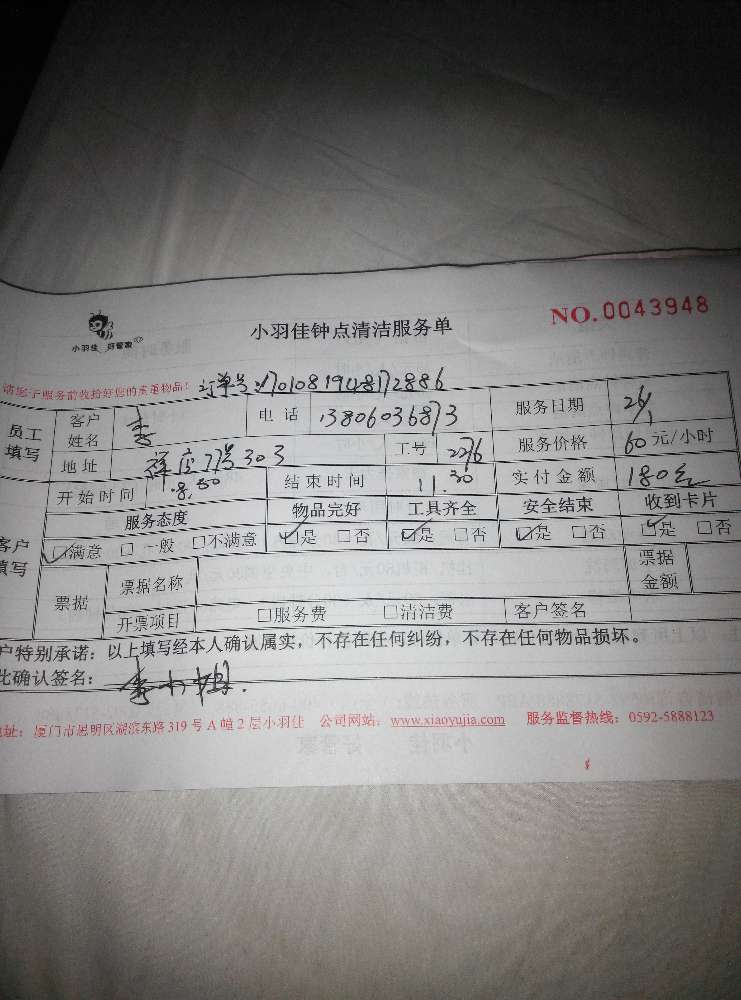 小羽佳 好管家
小羽佳钟点清洁服务单
NO.0043948
请您于服务前收拾好您的贵重物品！ 订单号:1701081948172886
员工填写 客户姓名 李 电话 13806036873 服务日期 26/1
地址 祥店77号303 工号 2276 服务价格 60元/小时
开始时间 8.30 结束时间 11.30 实付金额 180元
服务态度 物品完好 工具齐全 安全结束 收到卡片
客户填写 ☑满意 □一般 □不满意 ☑是 □否 ☑是 □否 ☑是 □否 ☑是 □否
票据 票据名称 票据金额
开票项目 □服务费 □清洁费 客户签名
户特别承诺：以上填写经本人确认属实，不存在任何纠纷，不存在任何物品损坏。
此确认签名： 李小姐.
址：厦门市思明区湖滨东路319号A幢2层小羽佳 公司网站：www.xiaoyujia.com 服务监督热线：0592-5888123